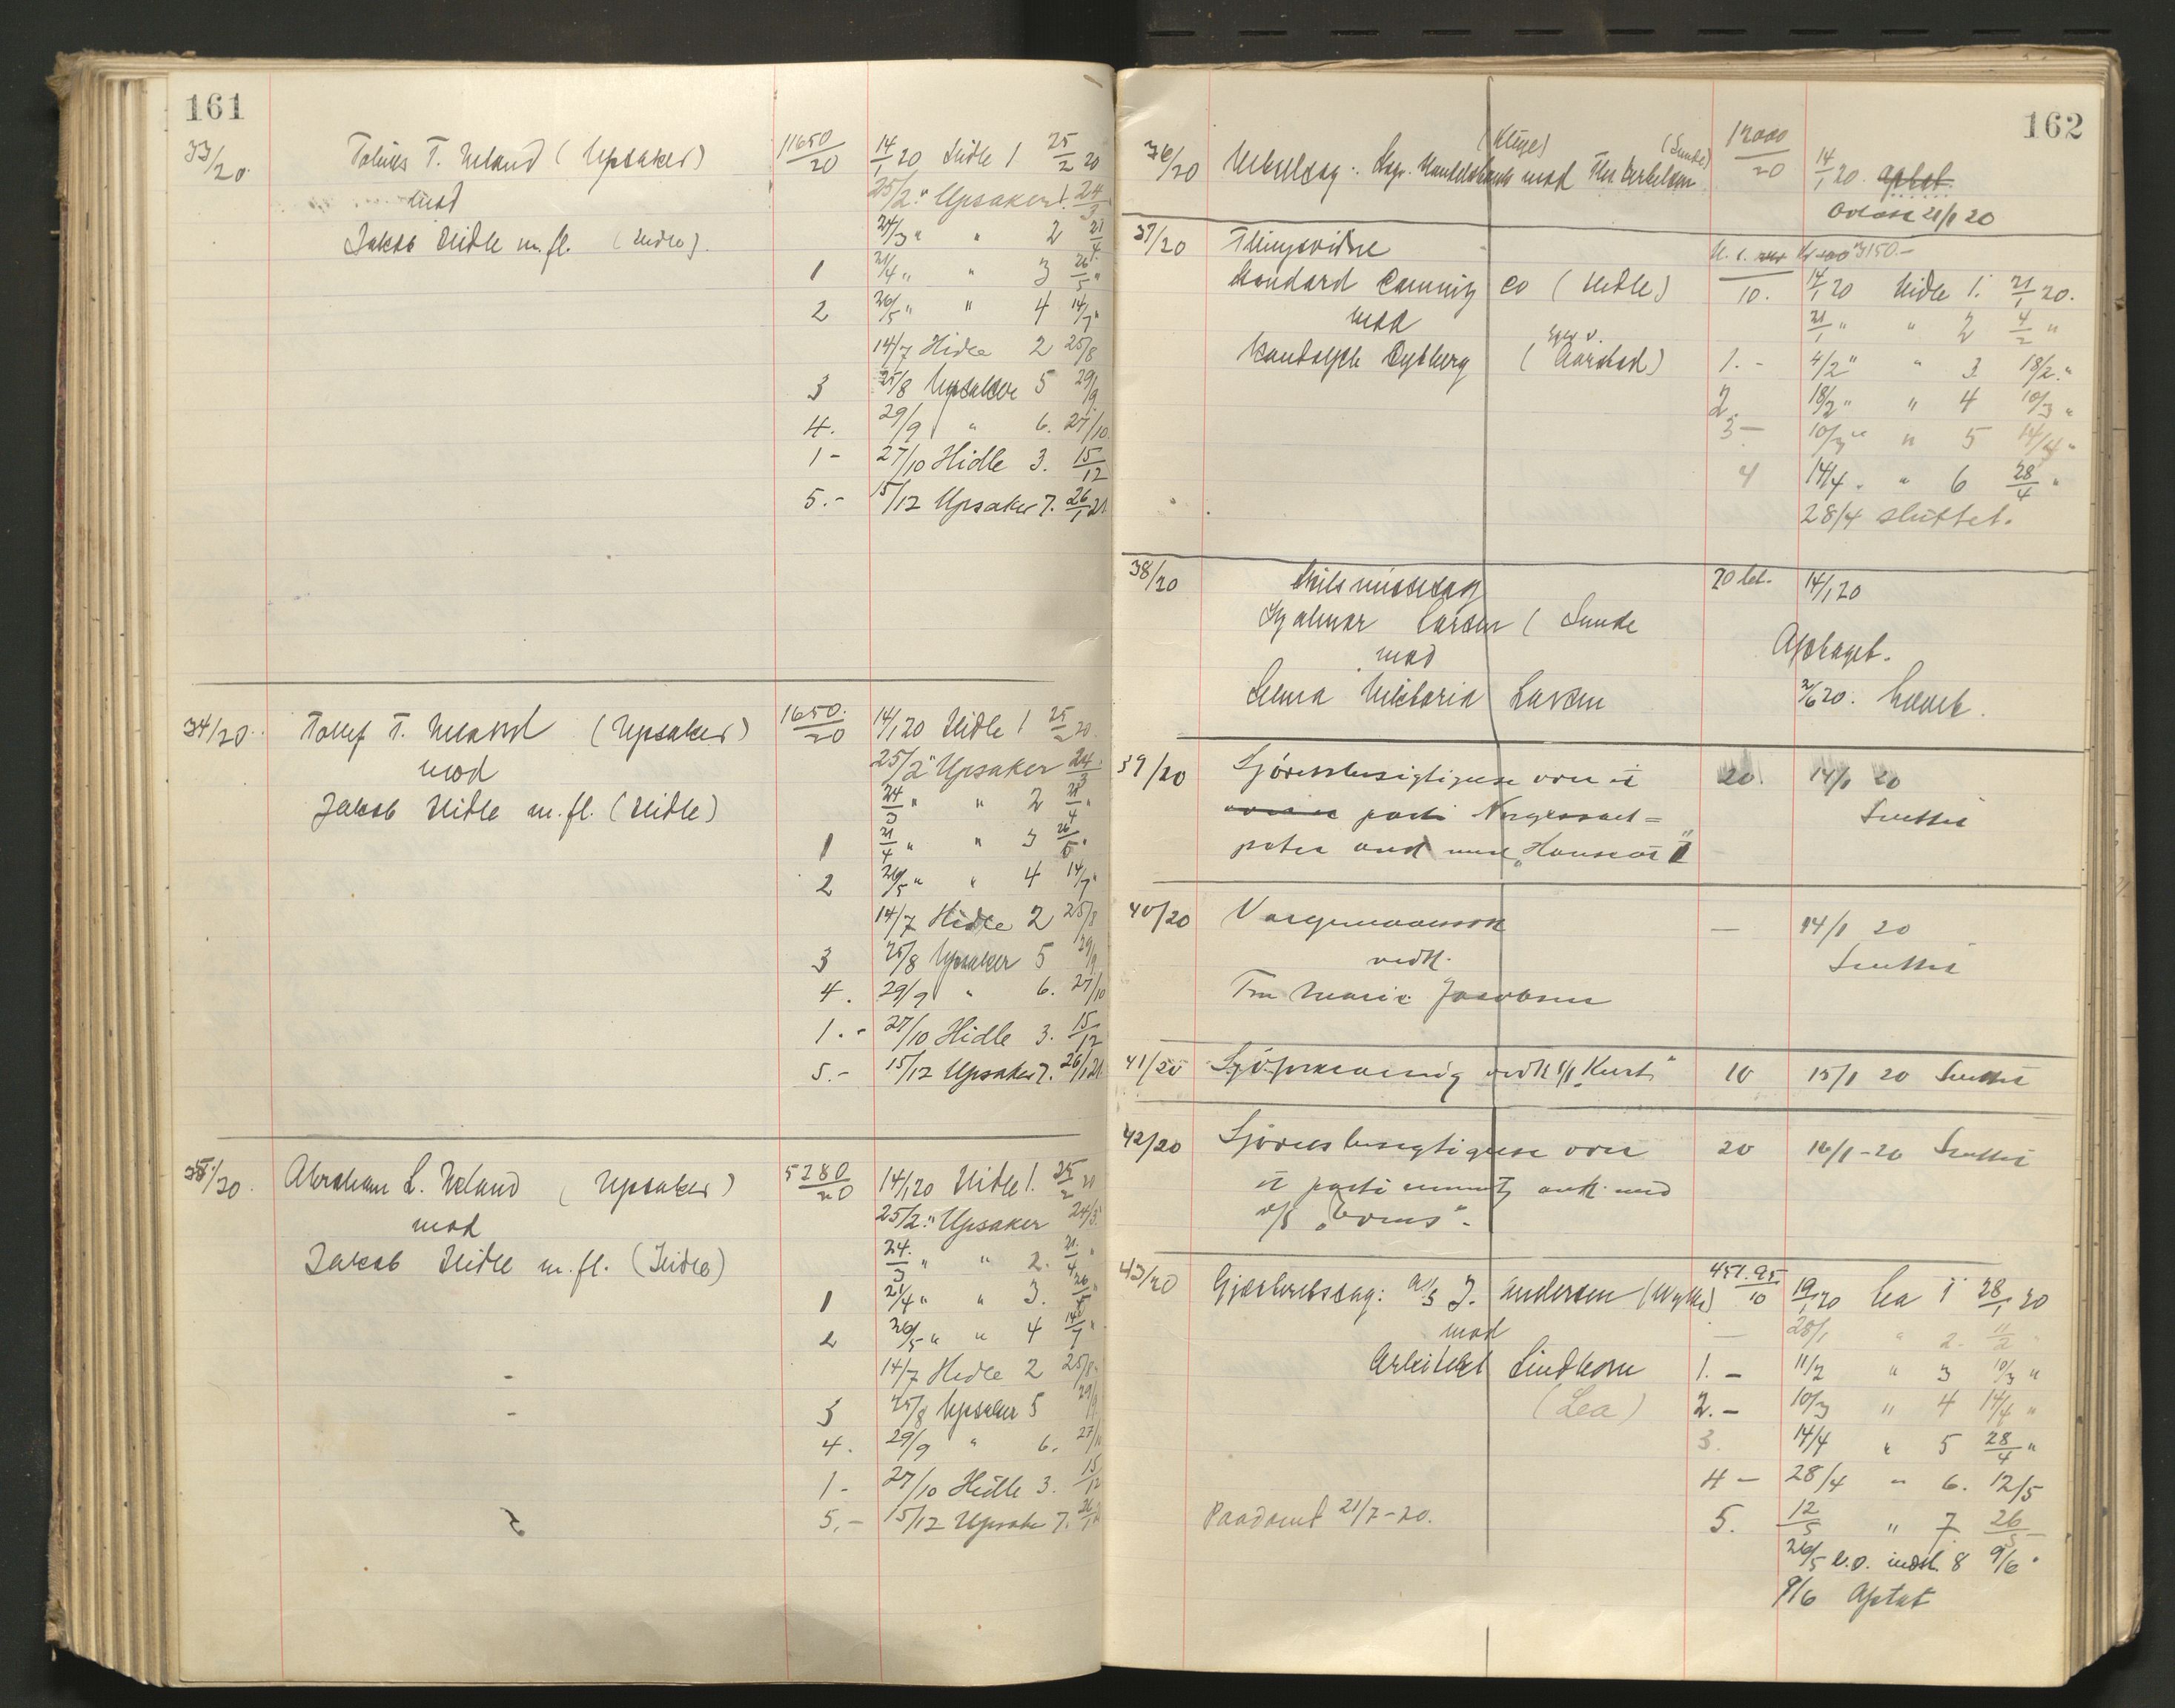 161
33/20. Tolines T. Meland (Upsaker) 11650/20 14/1 20 Hidle 1 25/2 20
mod 25/2 " Upsaker 1. 24/3
Jakob Hidle m. fl. (Hidle). 24/3 " " 2 21/4
1 21/4 " " 3 26/5 "
2 26/5 " " 4 14/7 "
14/7 Hidle 2 25/8
3 25/8 Upsaker 5 29/9
4. 29/9 " 6. 27/10
1 - 27/10 Hidle 3. 15/12
5. - 15/12 Upsaker 7. 26/1 21
34/20. Tollef T. Meland (Upsaker) 1650./20 14/1 20 Hidle 1 25/2 20
mod 25/2 " Upsaker 24/3
Jakob Hidle m. fl. (Hidle) 24/3 " " 2 21/4 "
1 21/4 " " 3 26/5 "
2 26/5 " " 4 14/7 "
14/7 Hidle 2 25/8
3 25/8 Upsaker 5 29/9
4. 29/9 " 6. 27/10
1. - 27/10 Hidle 3. 15/12
5. - 15/12 Upsaker 7. 26/1 21
35/20. Abraham L. Meland (Upsaker) 5280/20 14/1 20 Hidle 1. 25/2 20
mod 25/2 " Upsaker 24/3
Jakob Hidle m. fl. (Hidle) 24./3 " " 2. 21./4 "
1 21/4 " " 3. 26/5 "
2 26/5 " " 4 14/7 "
14/7 Hidle 2 25/8
3 25/8 Upsaker 5 29/9
4. 29/9 " 6. 27/10
1 - 27/10 Hidle 3. 15/12
5. - 15/12 Upsaker 7. 26/1
162
(Kluge) (Sunde)
36/20 Handelsbank mod 12000/20 14/1 20. aftat.
21/1 20
37/20 Thingsvidne 3150.-
Standard Canning Co (Hidle) 10. 14/1 20 Hidle 1. 21/1 20.
mod 21/1 " " 2 4/2 "
Rydberg (Aarstad) 1. - 4/2 " " 3 18/2 "
2. 18/2 " " 4 10/3 "
3 - 10/3 " " 5 14/4 "
4 14/4 " " 6 28/4 "
28/4 sluttet.
38/20 Skilsmissesag 20 14/1 20
Hjalmar Larsen (Sunde
mod Optaget.
Selma Viktoria Larsen 2/6 20. hævet.
39/20 Sjørettsbesigtigelse over et 20. 14/1 20
parti Norgessal= Sluttet
peter ank med "Haukaas I"
40/20 Værgemaalssak — 14/1 20
vedk. Sluttet
Fru Marie Jacobsen
41/20 Sjøforklaring vedk s/s "Kurt" 10 15/1 20 Sluttet
42/20 Sjørettsbesigtigelse over 20 16/1 - 20 Sluttet
et parti ank. med
s/s "Venus".
43/20 Gjæstretssag: A/S J. Andersen 451.95/10 19/1 20 Lea 1 28/1 20
mod — 28/1 " 2. 11/2
Arkitekt Lindhom 1. - 11/2 " 3 10/3 "
(Lea) 2. - 10/3 " 4 14/4 "
3. 14/4 " 5 28/4 "
4 - 28/4 " 6. 12/5
Paadømt 21/7 - 20. 5. 12/5 " 7 26/5
26/5 8 9/6.
9/6 Optat